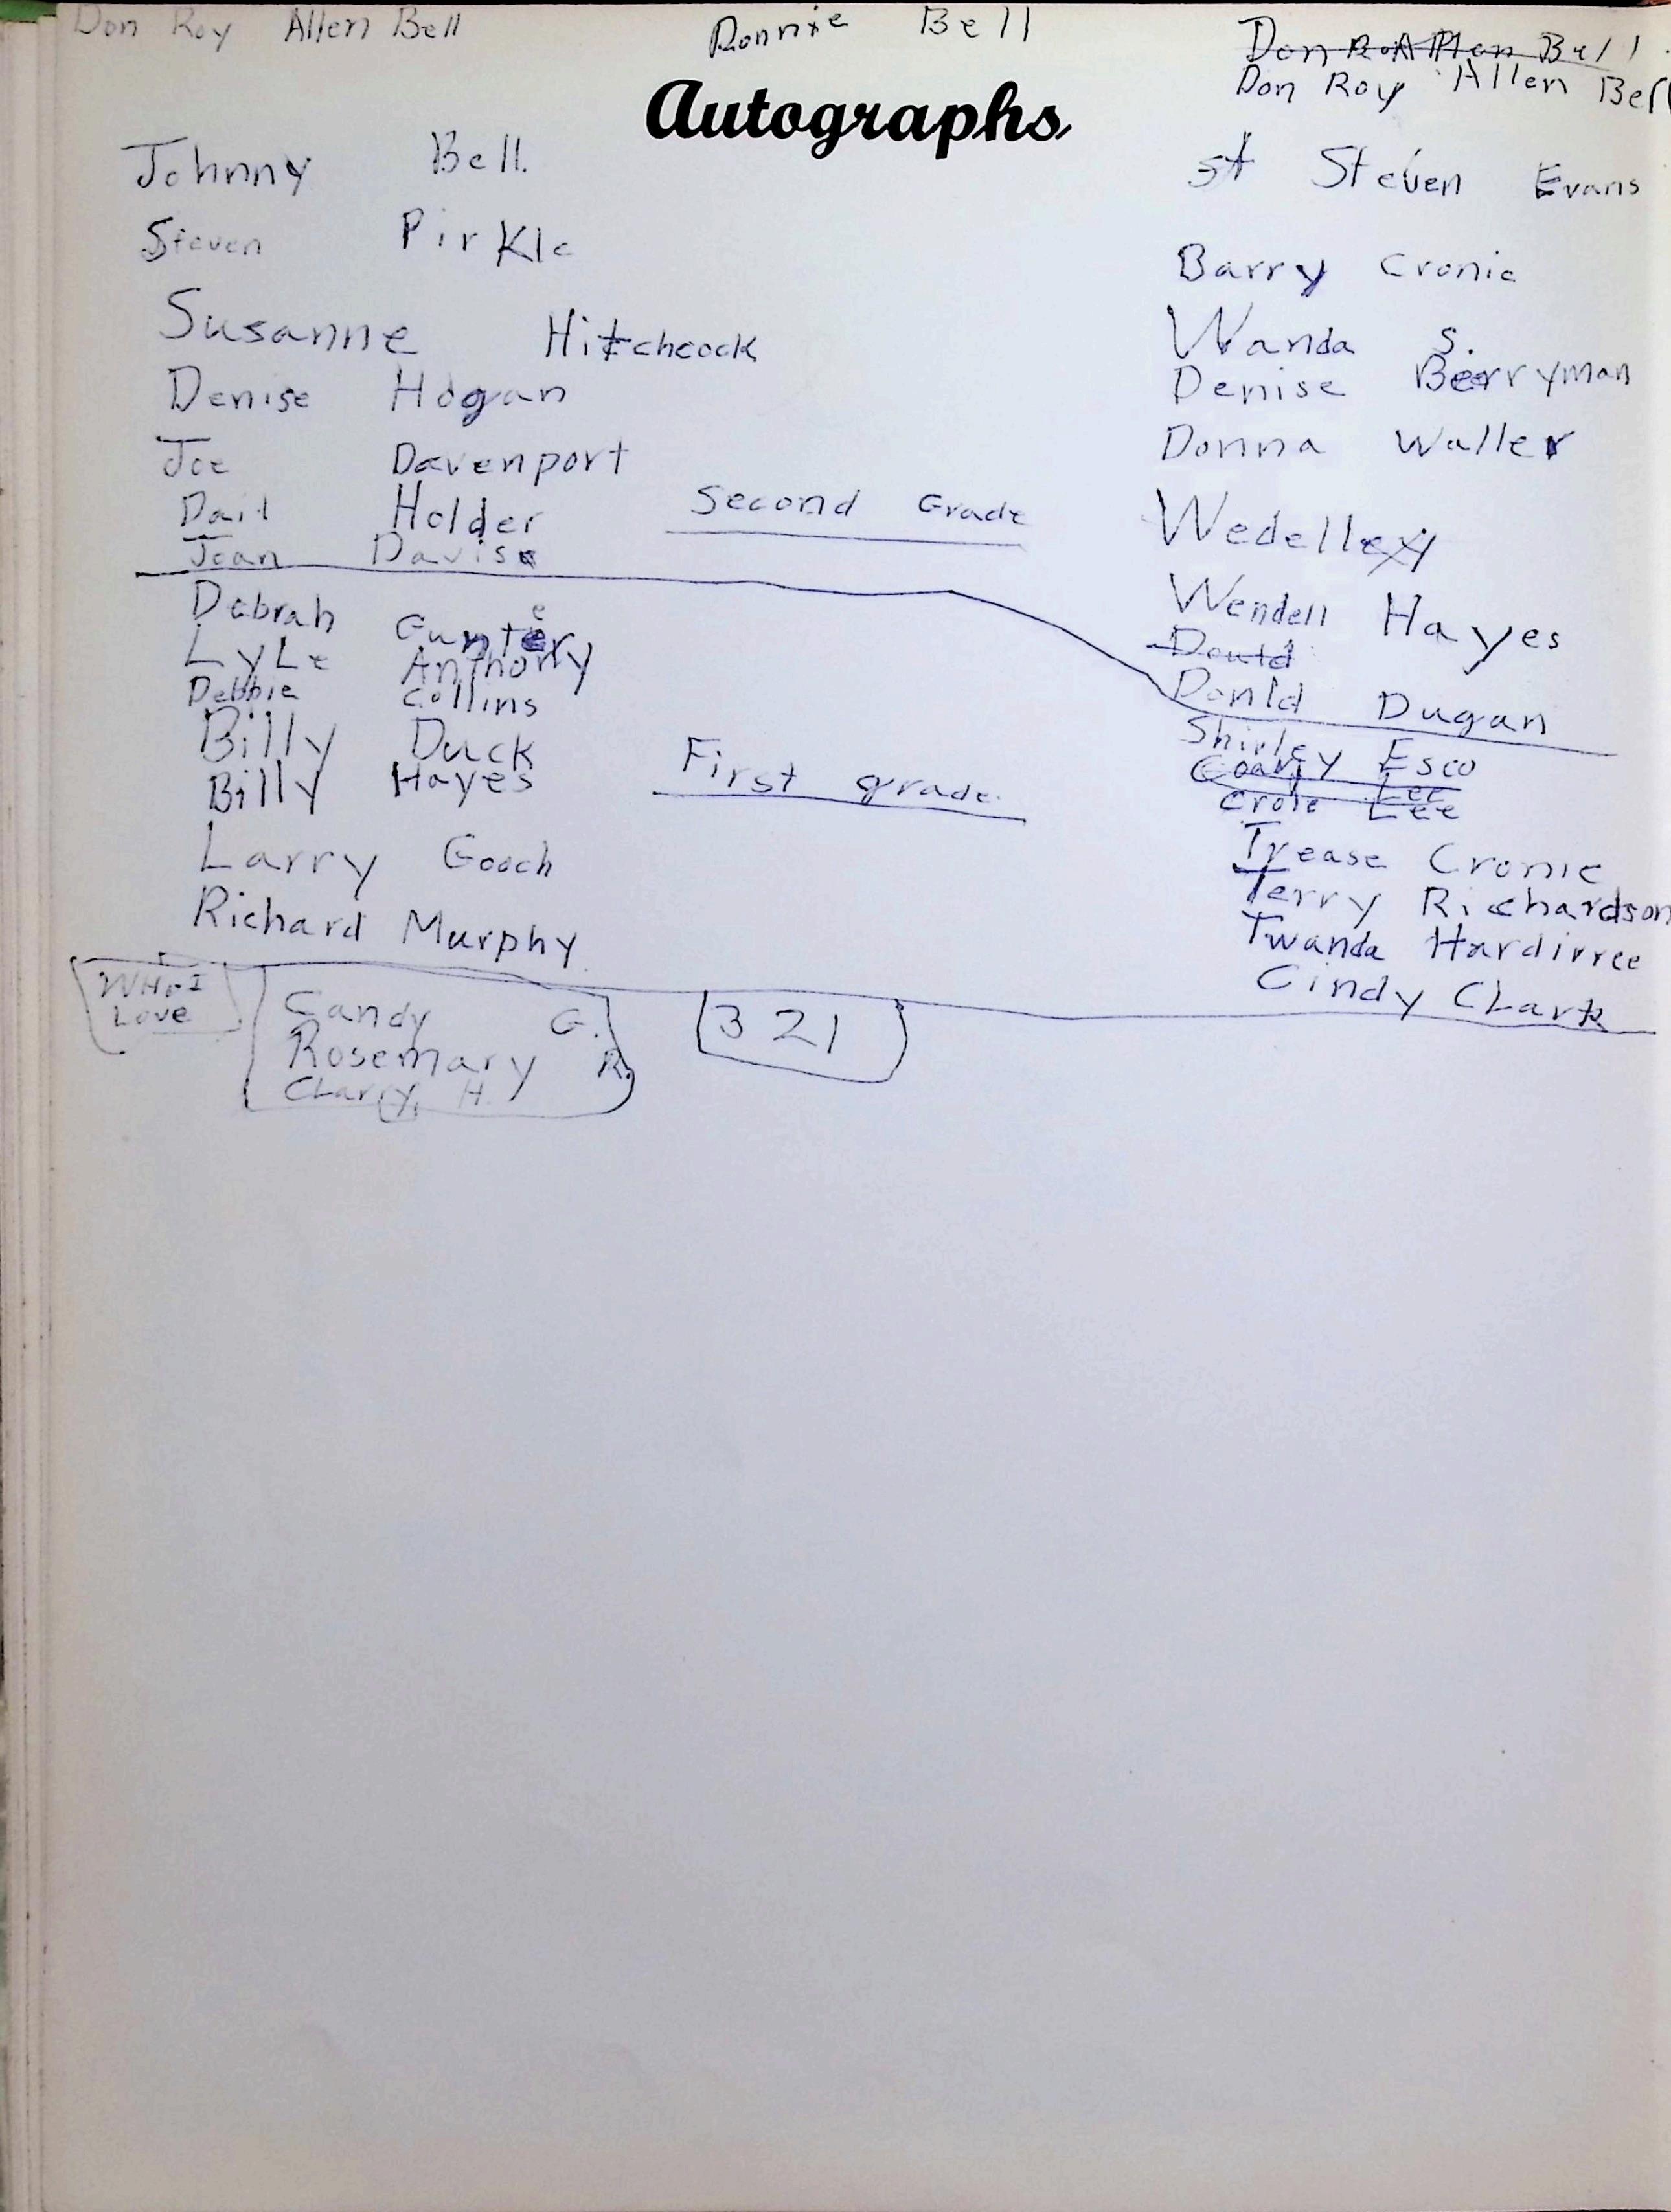 Don Roy Allen Bell
Ronnie Bell
Don R. Allen Bell
Don Roy Allen Bell
Autographs
Johnny Bell.
Steven Pirkle
Susanne Hitchcock
Denise Hogan
Joe Davenport
Dail Holder
Joan Davis
Second Grade
st Steven Evans
Barry Cronic
Wanda S.
Denise Berryman
Donna Waller
Wedell
Wendell Hayes
Donld Dugan
Debrah Gunter
LyLe Anthony
Debbie Collins
Billy Duck
Billy Hayes
Larry Gooch
Richard Murphy
First grade.
Shirley Esco
Lee
Crole Lee
Trease Cronic
Terry Richardson
Twanda Hardirree
Cindy CLark
WHo I
Love
Candy G.
Rosemary R.
CLarry, H.
3 2 1